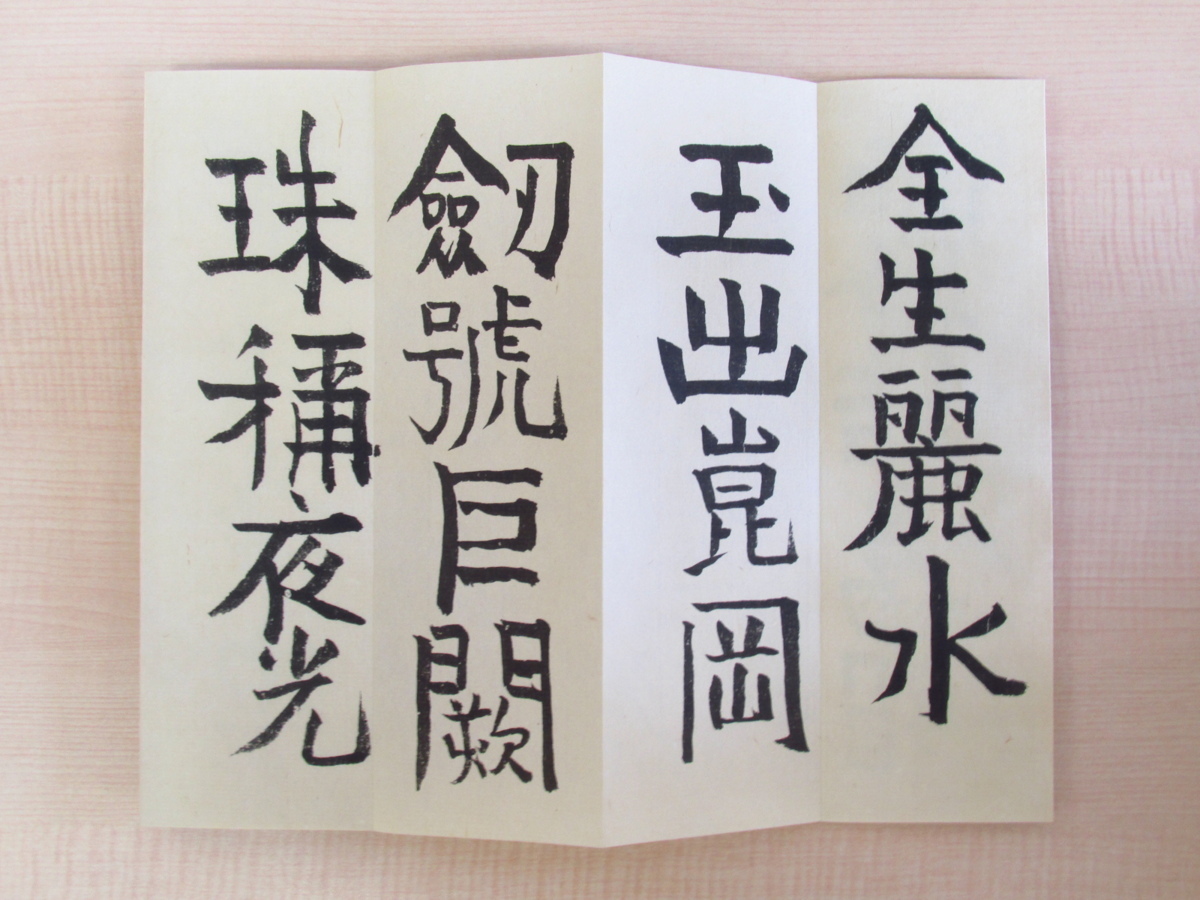 金生麗水
玉出崑岡
劒號巨闕
珠稱夜光